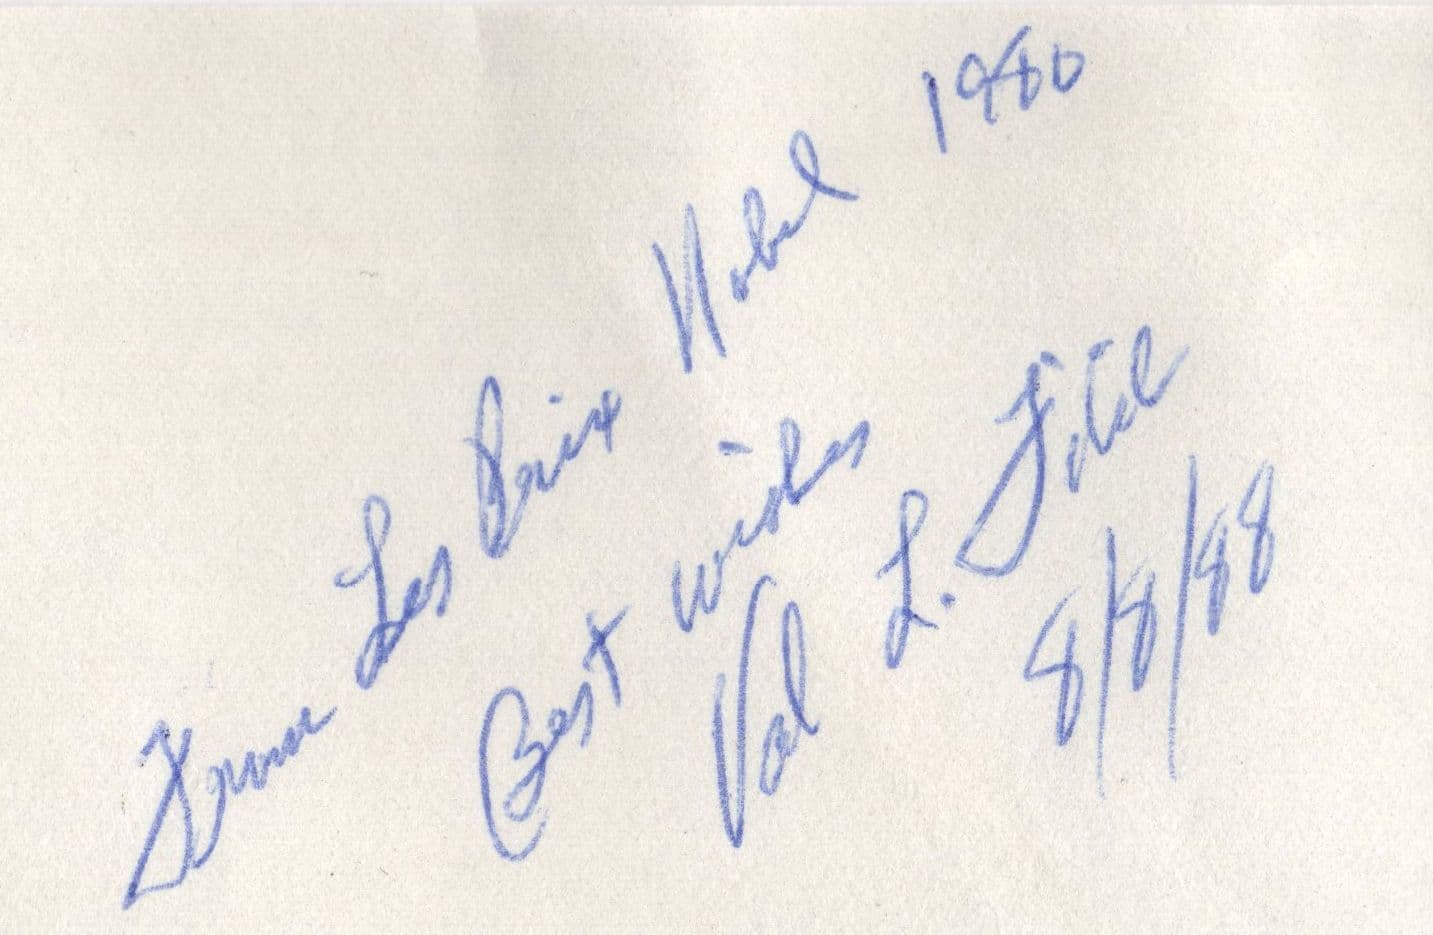 From Les Prix Nobel 1980
Best wishes
Val L. Fitch
8/8/88